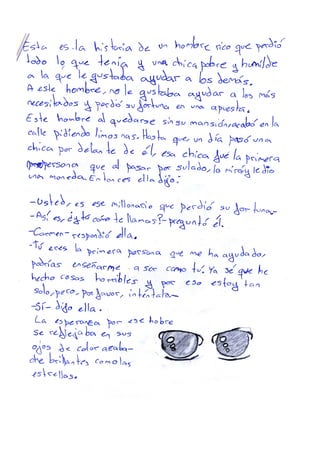 Esta es la historia de un hombre rico que perdió
todo lo que tenía y una chica pobre y humilde
a la que le gustaba ayudar a los demás.
A este hombre, no le gustaba ayudar a los más
necesitados y perdió su fortuna en una apuesta.
Este hombre al quedarse sin su mansión, acabó en la
calle pidiendo limosnas. Hasta que, un día pasó una
chica por delante de él, esa chica fue la primera
persona que al pasar por su lado, lo miró y le dio
una moneda. Entonces ella dijo:
-Usted, es ese millonario que perdió su fortuna-
-Así es, ¿y tú cómo te llamas?- preguntó él.
-Carmen- respondió ella.
-Tú eres la primera persona que me ha ayudado,
podrías enseñarme a ser como tú. Ya sé que he
hecho cosas horribles y por eso estoy tan
solo, pero, por favor, inténtalo-
-Sí- dijo ella.
La esperanza por ese hobre
se reflejaba en sus
ojos de color azaba-
che brillantes como las
estrellas.